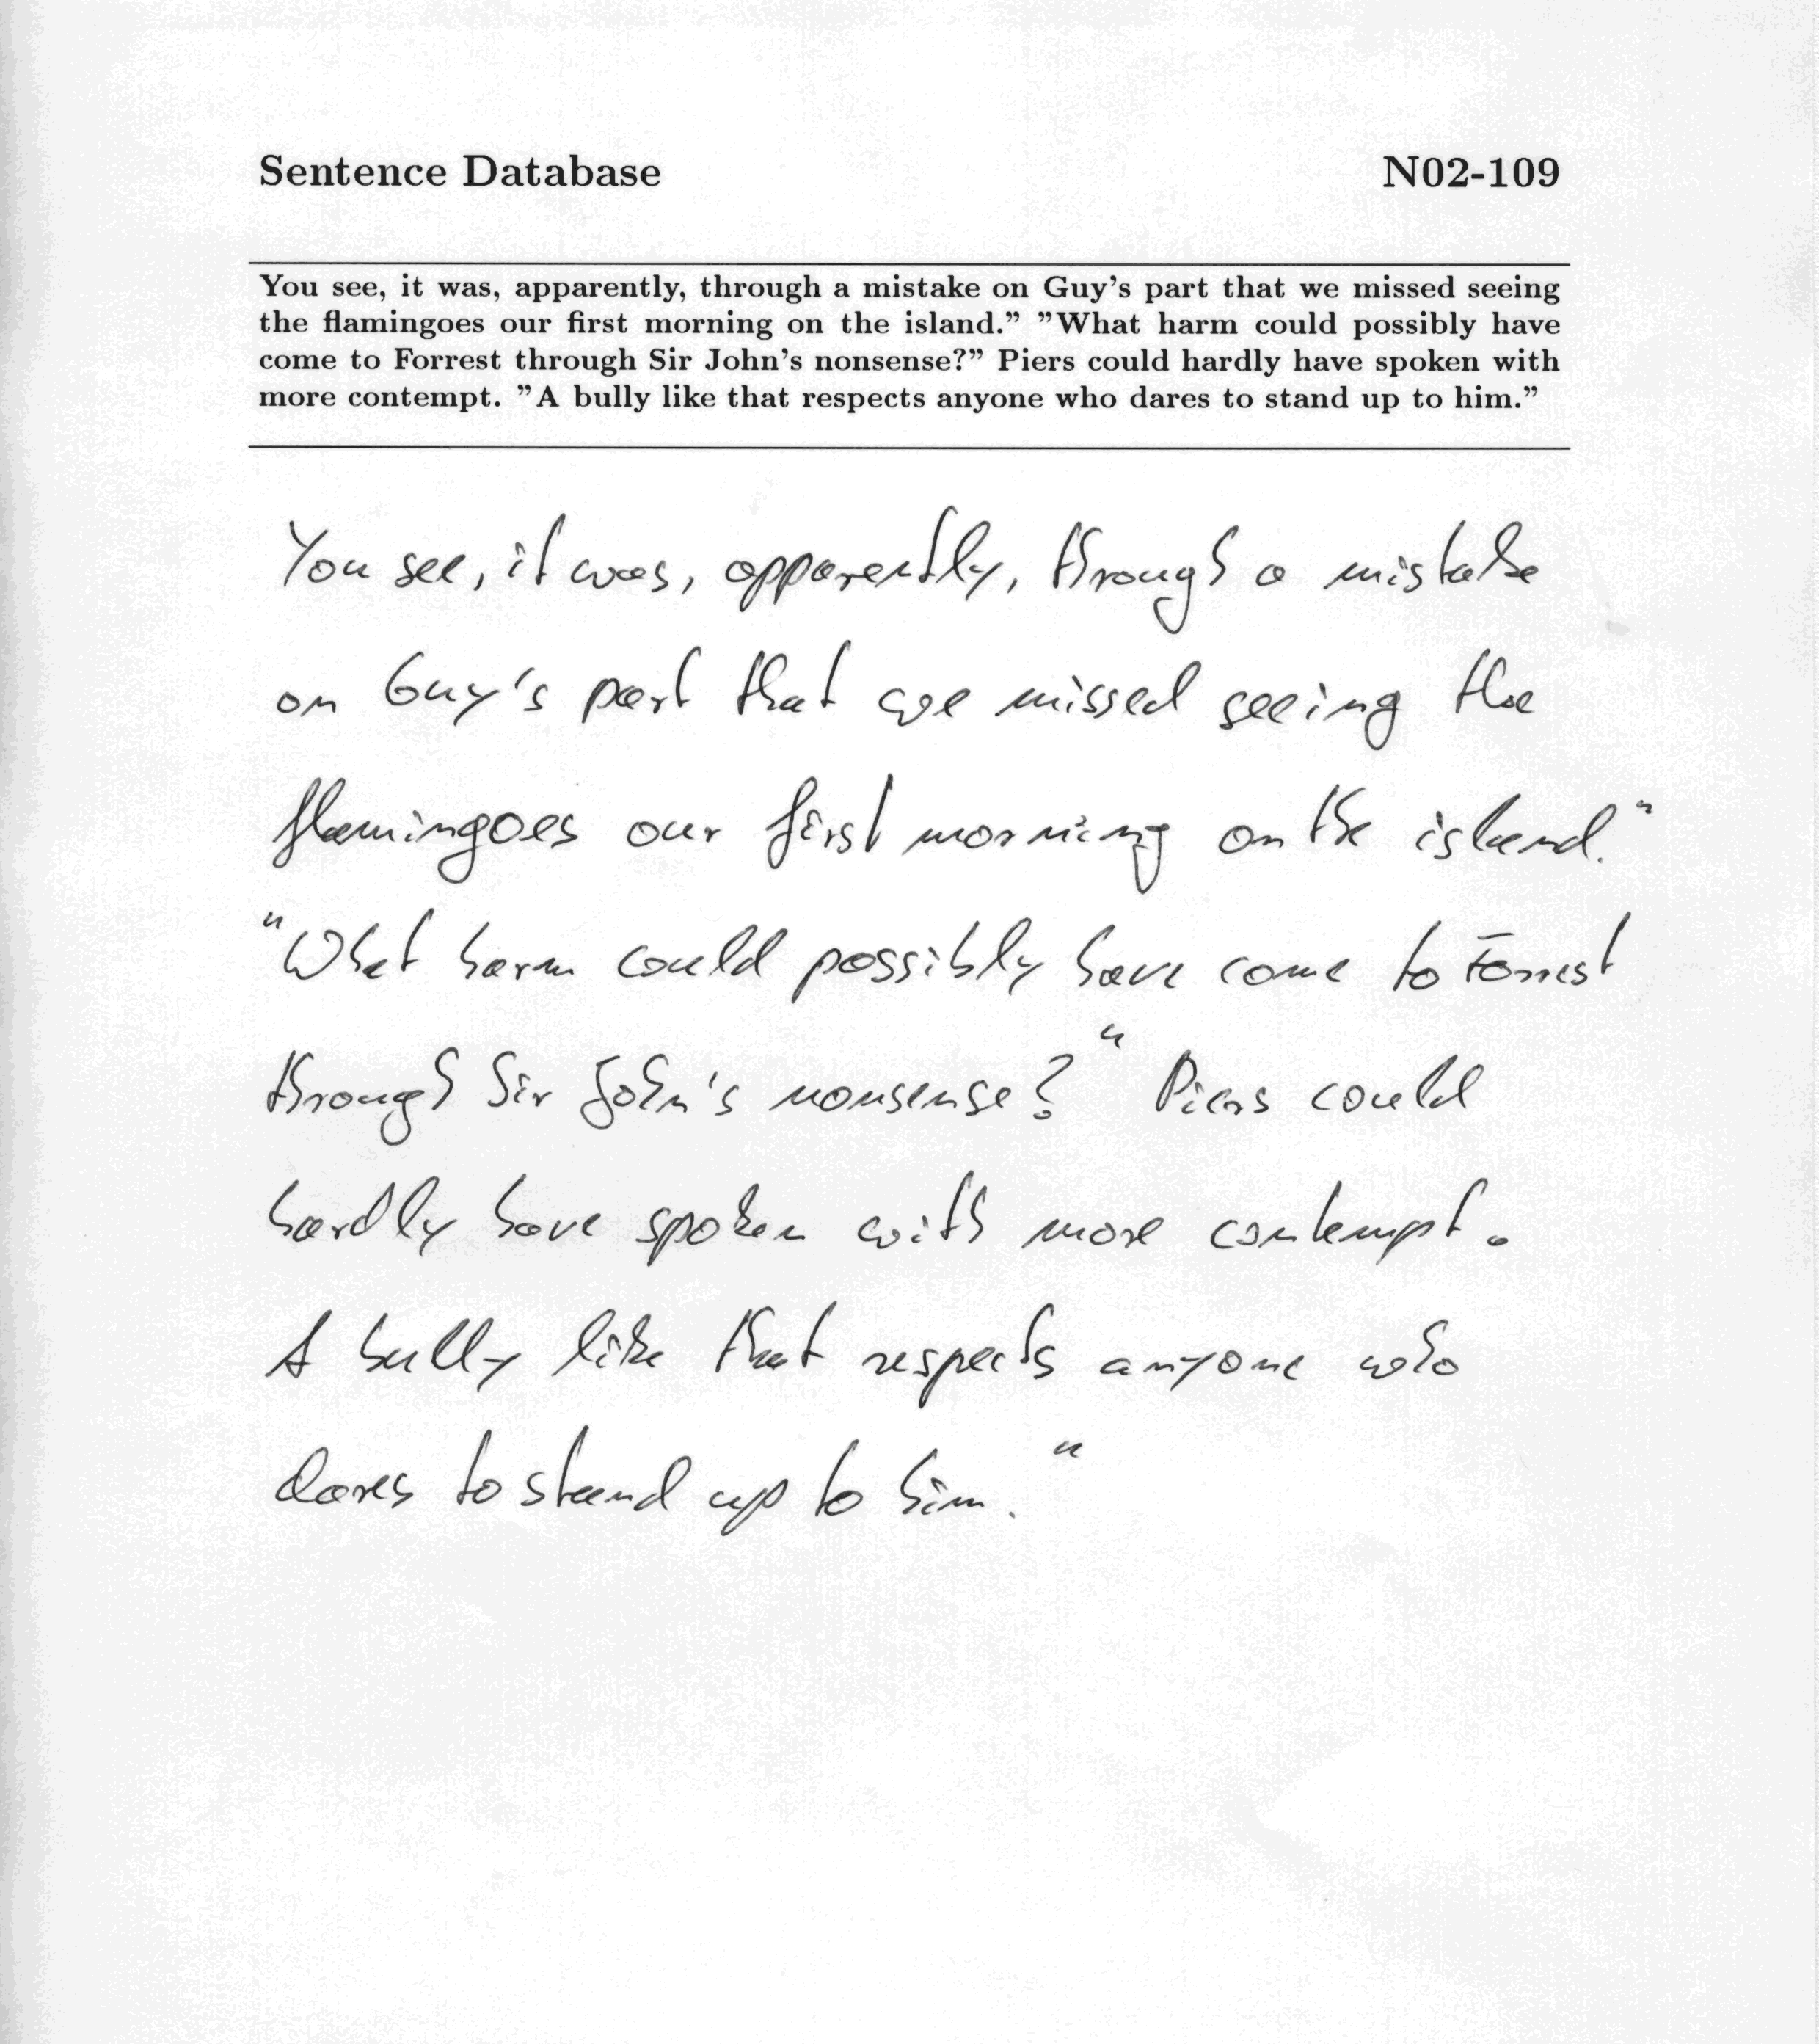 Sentence Database N02-109
You see, it was, apparently, through a mistake on Guy's part that we missed seeing
the flamingoes our first morning on the island.” ”What harm could possibly have
come to Forrest through Sir John's nonsense?” Piers could hardly have spoken with
more contempt. ”A bully like that respects anyone who dares to stand up to him.”
You see, it was, apparently, through a mistake
on Guy's part that we missed seeing the
flamingoes our first morning on the island."
"What harm could possibly have come to Forrest
through Sir John's nonsense?" Piers could
hardly have spoken with more contempt.
A bully like that respects anyone who
dares to stand up to him."